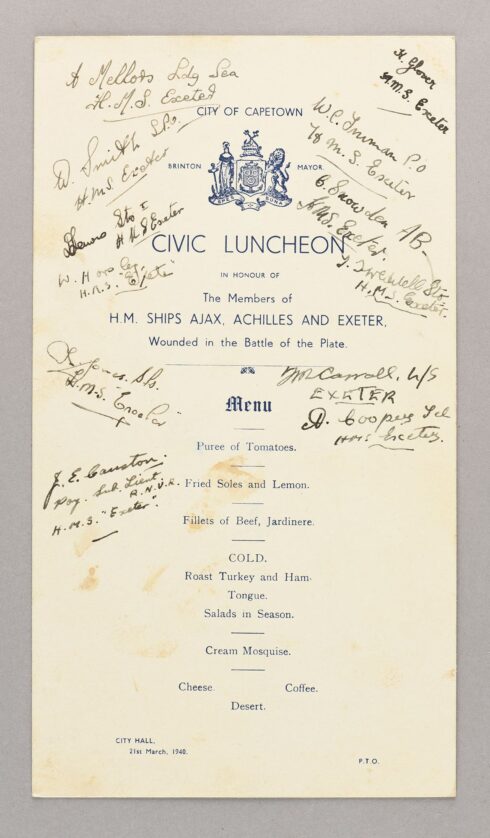 A Mellors Ldg Sea
H.M.S. Exeter
H. Glover
H.M.S. Exeter
CITY OF CAPETOWN
D. Smith S.P.O
H.M.S. Exeter
W.C. Truman P.O
H.M.S. Exeter
BRINTON MAYOR.
SPES BONA
C. Snowden AB.
H.M.S. Exeter.
Sto I
H M S Exeter
CIVIC LUNCHEON
W. H
H.M.S. Exeter
J. Twewell Sto
H.M.S. Exeter.
IN HONOUR OF
The Members of
H.M. SHIPS AJAX, ACHILLES AND EXETER,
Wounded in the Battle of the Plate.
Jones
H.M.S. Exeter
Carroll, L/S
EXETER
Menu
A. Cooper Tel
HMS Exeter.
Puree of Tomatoes.
J. E. Causton.
Pay. Sub. Lieut
R.N.V.R.
H.M.S. "Exeter".
Fried Soles and Lemon.
Fillets of Beef, Jardinere.
COLD.
Roast Turkey and Ham.
Tongue.
Salads in Season.
Cream Mosquise.
Cheese. Coffee.
Desert.
CITY HALL,
21st March, 1940.
P.T.O.